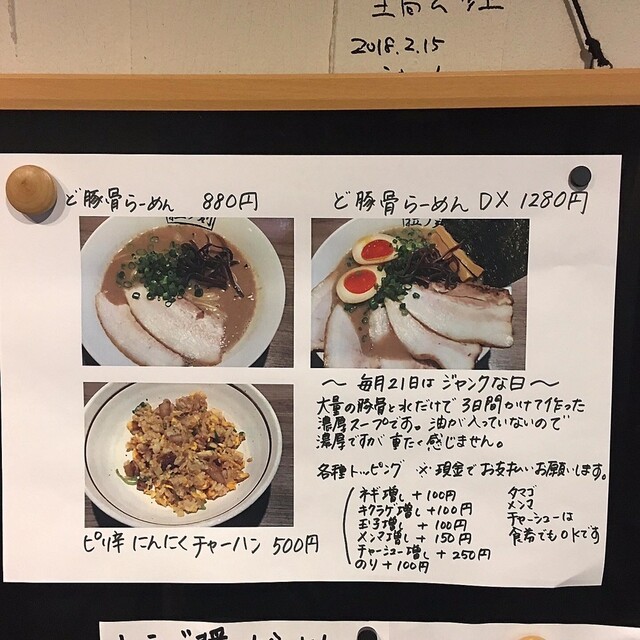 2018.2.15
ど豚骨らーめん 880円
ど豚骨らーめん DX 1280円
～ 毎月21日は ジャンクな日 ～
大量の豚骨と水だけで 3日間かけて作った
濃厚スープです。油が入っていないので
濃厚ですが重たく感じません。
各種トッピング ※現金でお支払いお願いします。
ネギ増し +100円
キクラゲ増し +100円
玉子増し +100円
メンマ増し +150円
チャーシュー増し +250円
のり +100円
タマゴ
メンマ
チャーシューは
食券でもOKです
ピリ辛 にんにくチャーハン 500円